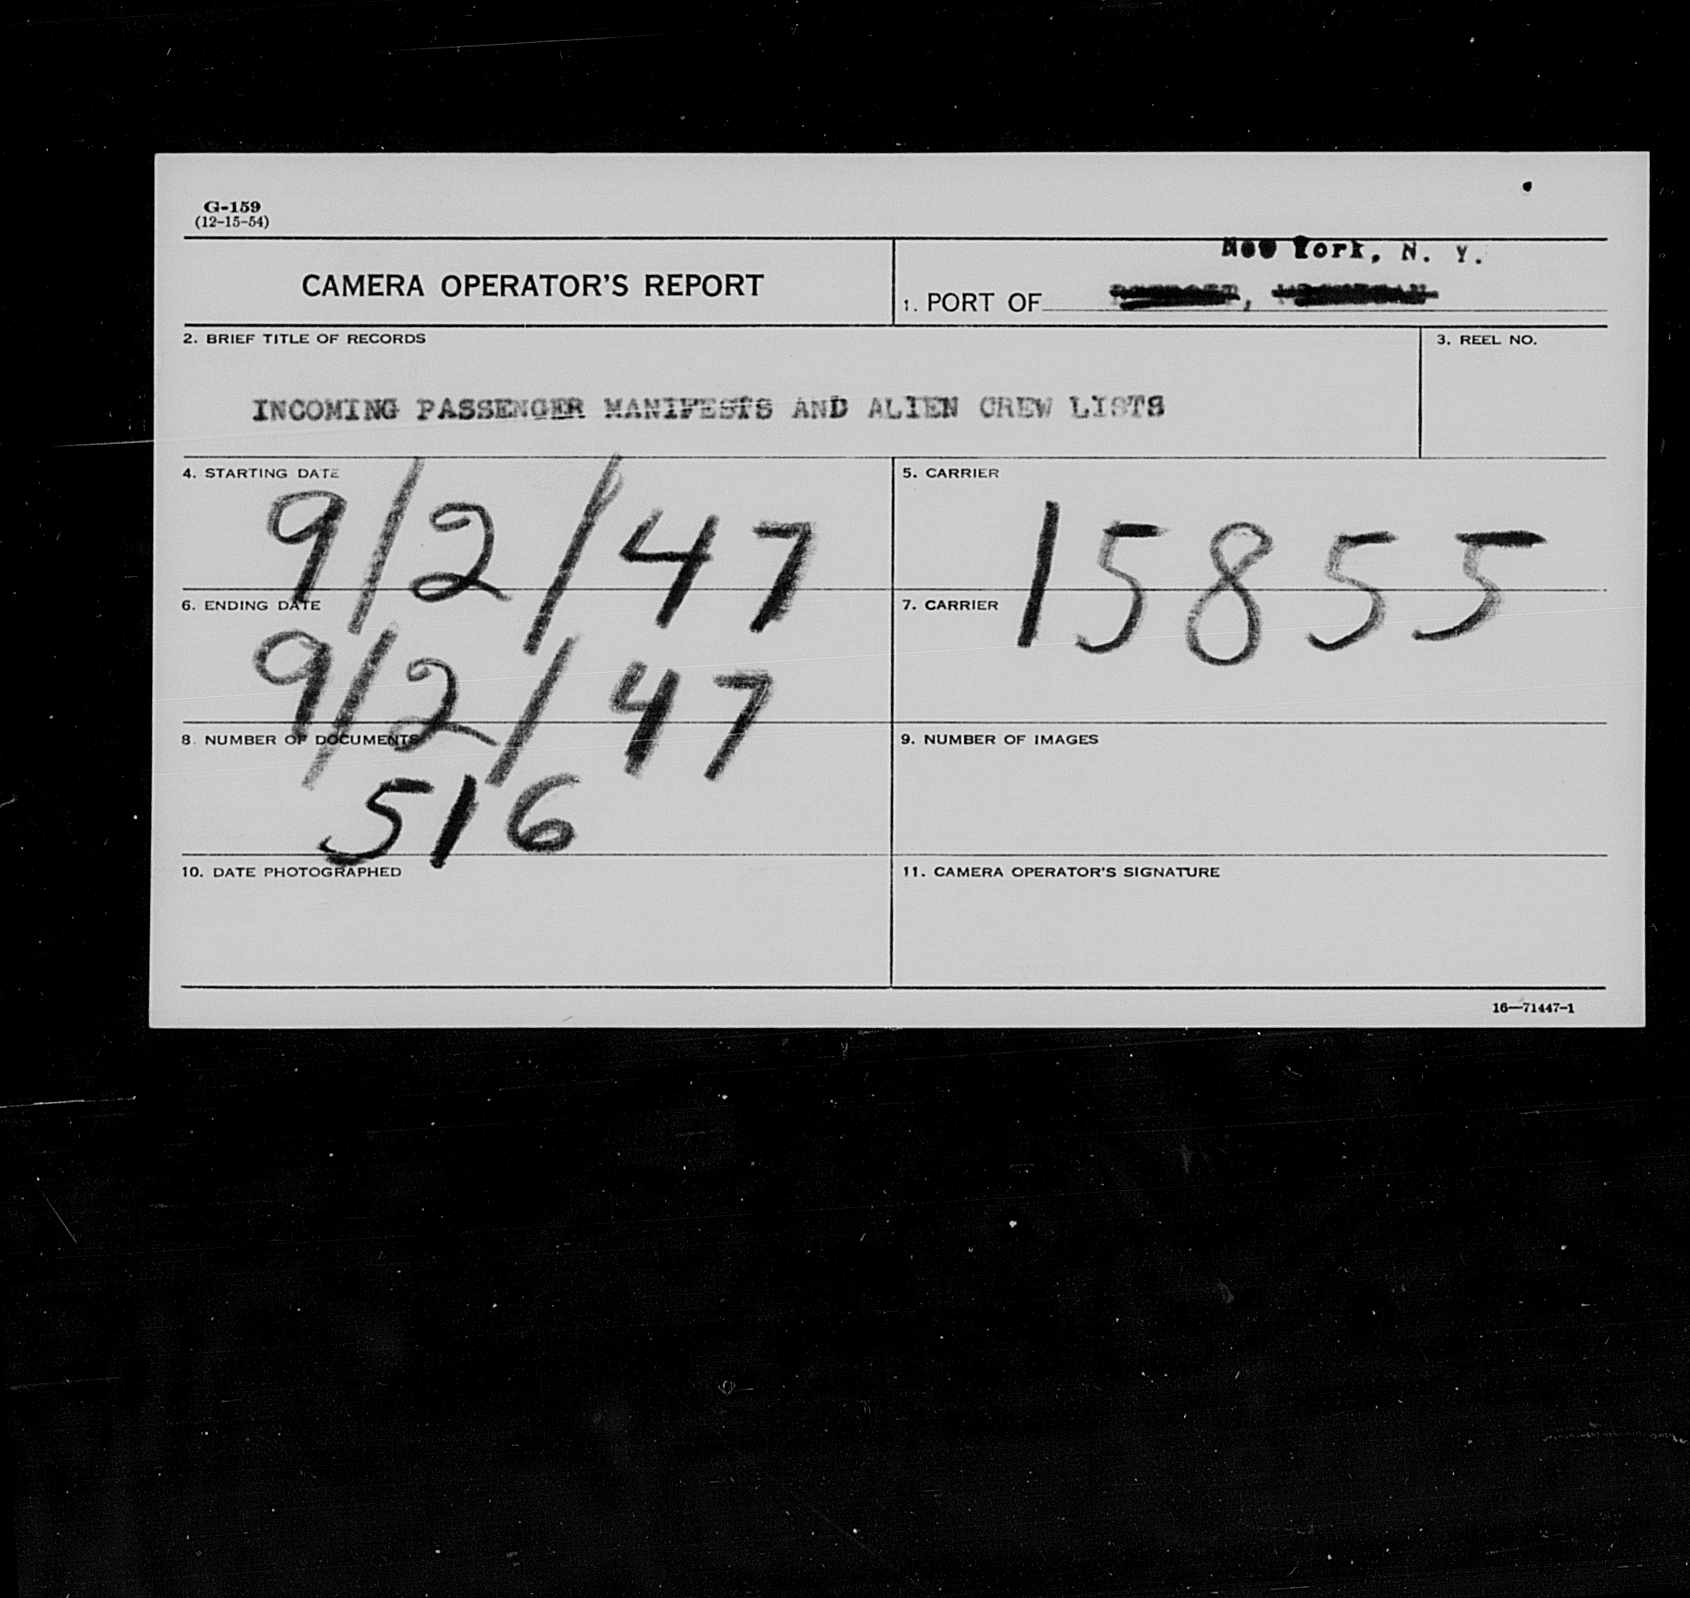 G-159
(12-15-54)
CAMERA OPERATOR'S REPORT
New York, N. Y.
1. PORT OF
2. BRIEF TITLE OF RECORDS
3. REEL NO.
INCOMING PASSENGER MANIFESTS AND ALIEN CREW LISTS
4. STARTING DATE
9/2/47
5. CARRIER
15855
6. ENDING DATE
9/2/47
7. CARRIER
8. NUMBER OF DOCUMENTS
516
9. NUMBER OF IMAGES
10. DATE PHOTOGRAPHED
11. CAMERA OPERATOR'S SIGNATURE
16—71447-1